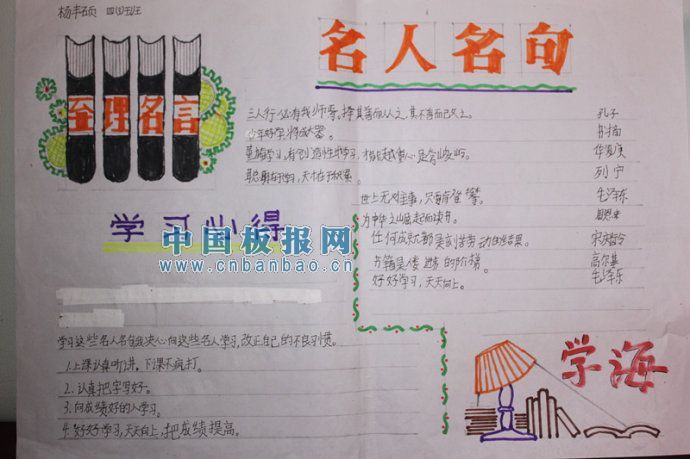 杨丰硕 四(2)班
至理名言
名人名句
三人行,必有我师焉,择其善而从之,其不善而改之。 孔子
少年好学,将成大器。
华罗庚
聪明在于学习,天才在于积累。 列宁
世上无难事,只要肯登攀。 毛泽东
为中华之崛起而读书。 周恩来
任何成就都是刻苦劳动的结果。 宋庆龄
书籍是人类进步的阶梯。 高尔基
好好学习,天天向上。 毛泽东
学习心得
中国板报网
www.cnbanbao.cn
学习这些名人名句我决心向这些名人学习,改正自己的不良习惯。
1.上课认真听讲,下课不疯打。
2.认真把字写好。
3.向成绩好的人学习。
4.好好学习,天天向上,把成绩提高。
学海